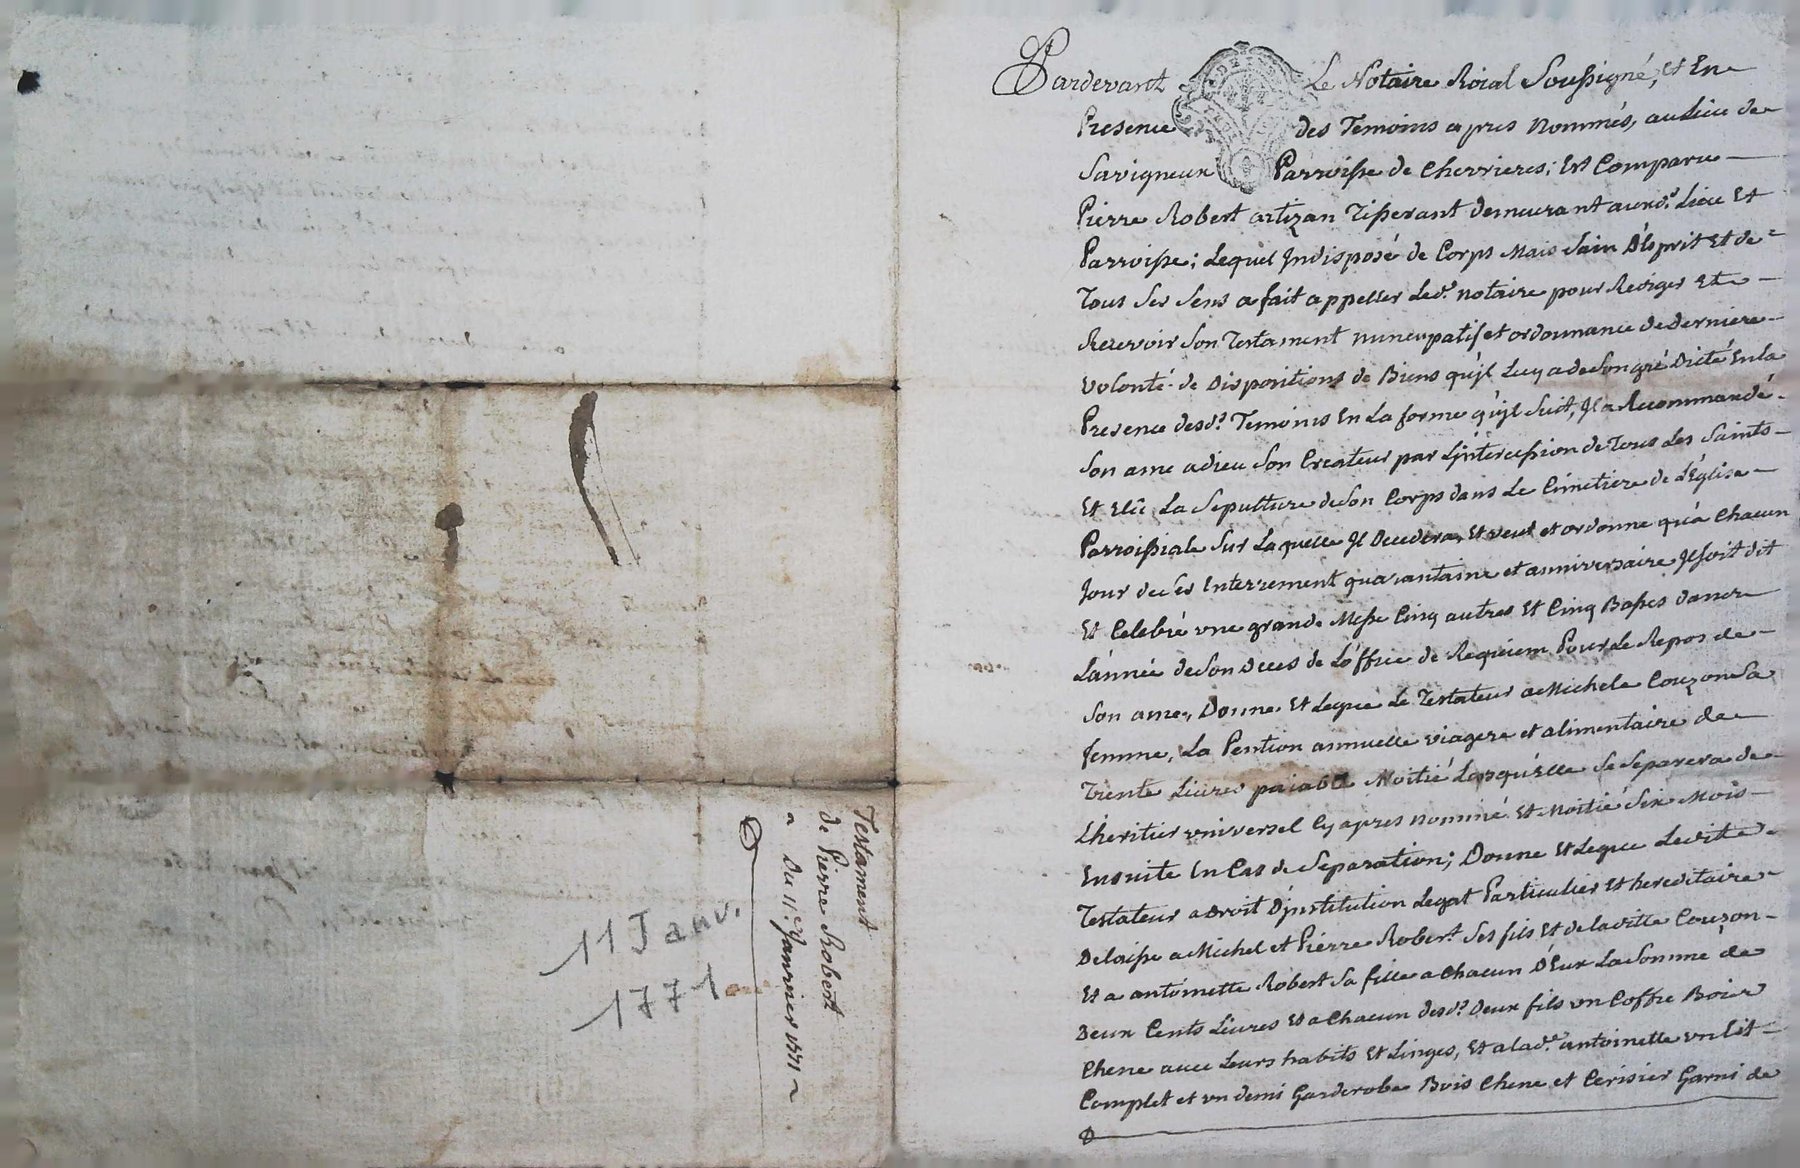 Testament
de Pierre Robert
a Du 11e Janvier 1771
11 Janv.
1771
Pardevant Le Notaire Roial Soussigné, et En
Presence des Temoins apres Nommés, au Lieu de
Savigneux Parroisse de Cherrieres; Est Comparu
Pierre Robert artizan Tisserant demeurant auxd.s Lieu Et
Parroisse; Lequel Indisposé de Corps Mais Sain D'Esprit Et de
Tous Ses Sens a fait appeller Led.t notaire pour Rediger Et
Recevoir Son Testament nuncupatif et ordonnance de derniere
volonté de Dispositions de Biens qu'jl Luy a de Son gré Dicté En la
Presence desd.s Temoins En La forme qu'jl Suit, Jl a Recommandé
Son ame a dieu Son Createur par L'jntercession de Tous Les Saints
Et Elû La Sepulture de Son Corps dans Le Cimetiere de L'Eglise
Parroissiale Sur Laquelle Jl Decedera, Et veut et ordonne qu'a Chacun
Jour de Ses Enterrement quarantaine et anniversaire Jl Soit dit
Et Celebré une grande Messe Cinq autres Et Cinq Basses dans
L'année de Son Deces de L'office de Requiem Pour Le Repos de
Son ame, Donne Et Legue Le Testateur a Michele Couzon Sa
femme, La Pention annuelle viagere et alimentaire de
Trente Livres paiable Moitié Lorsqu'Elle Se Separera de
L'heritier universel Cy apres nommé Et Moitié Six Mois
Ensuite En Cas de Separation; Donne Et Legue Ledit
Testateur a Droit D'jnstitution Legat Particulier Et hereditaire
Delaisse a Michel et Pierre Robert Ses fils Et de la ditte Couzon
Et a antoinette Robert Sa fille a Chacun D'Eux La Somme de
Deux Cents Livres Et a Chacun desd.s Deux fils un Coffre Bois
Chene avec Leurs habits Et Linges, Et a lad.e antoinette un Lit
Complet et un demi Garderobe Bois Chene et Cerisier Garni de